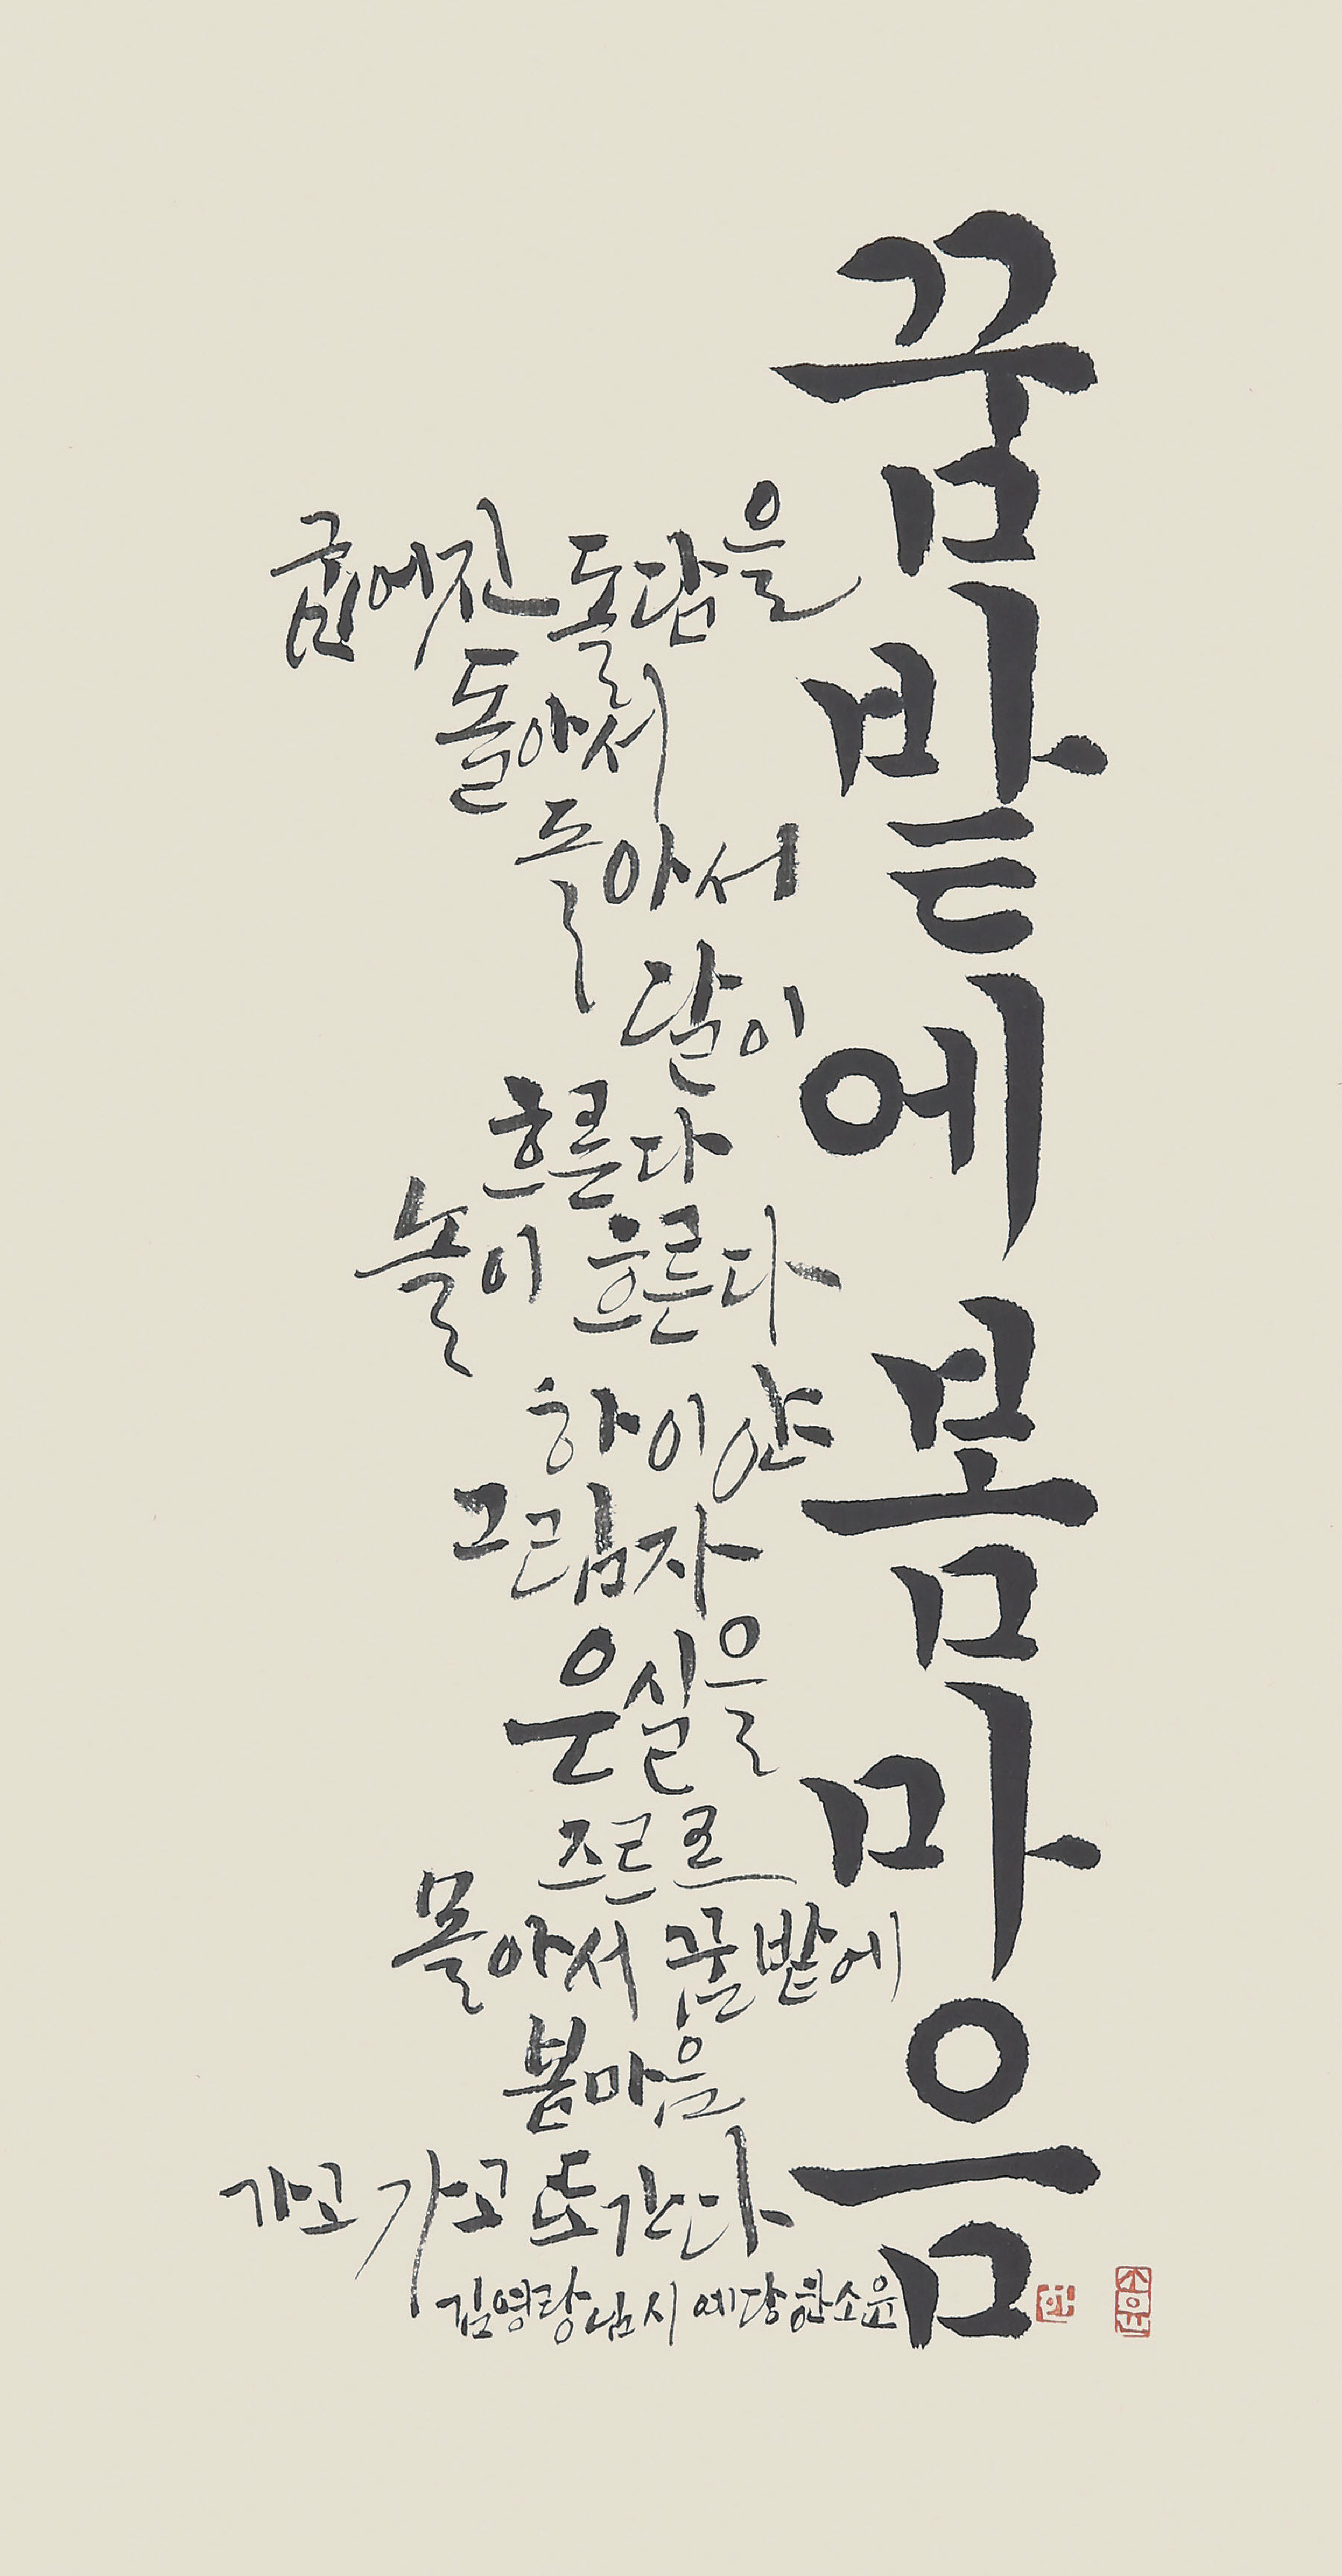 꿈밭에 봄마음
굽어진 돌담을
돌아서
돌아서
달이
흐른다
놀이 흐른다
하이얀
그림자
은실을
즈르르
몰아서 꿈밭에
봄마음
가고 가고 또 간다
김영랑님시 예당 한소윤